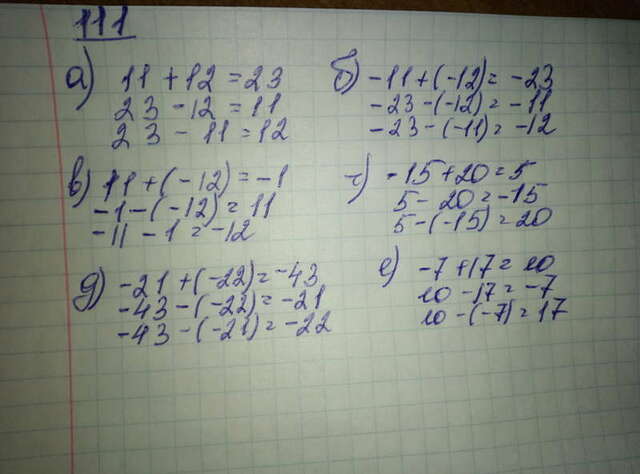 111
а) 11 + 12 = 23
23 - 12 = 11
23 - 11 = 12
б) -11 + (-12) = -23
-23 - (-12) = -11
-23 - (-11) = -12
в) 11 + (-12) = -1
-1 - (-12) = 11
-11 - 1 = -12
г) -15 + 20 = 5
5 - 20 = -15
5 - (-15) = 20
д) -21 + (-22) = -43
-43 - (-22) = -21
-43 - (-21) = -22
е) -7 + 17 = 10
10 - 17 = -7
10 - (-7) = 17